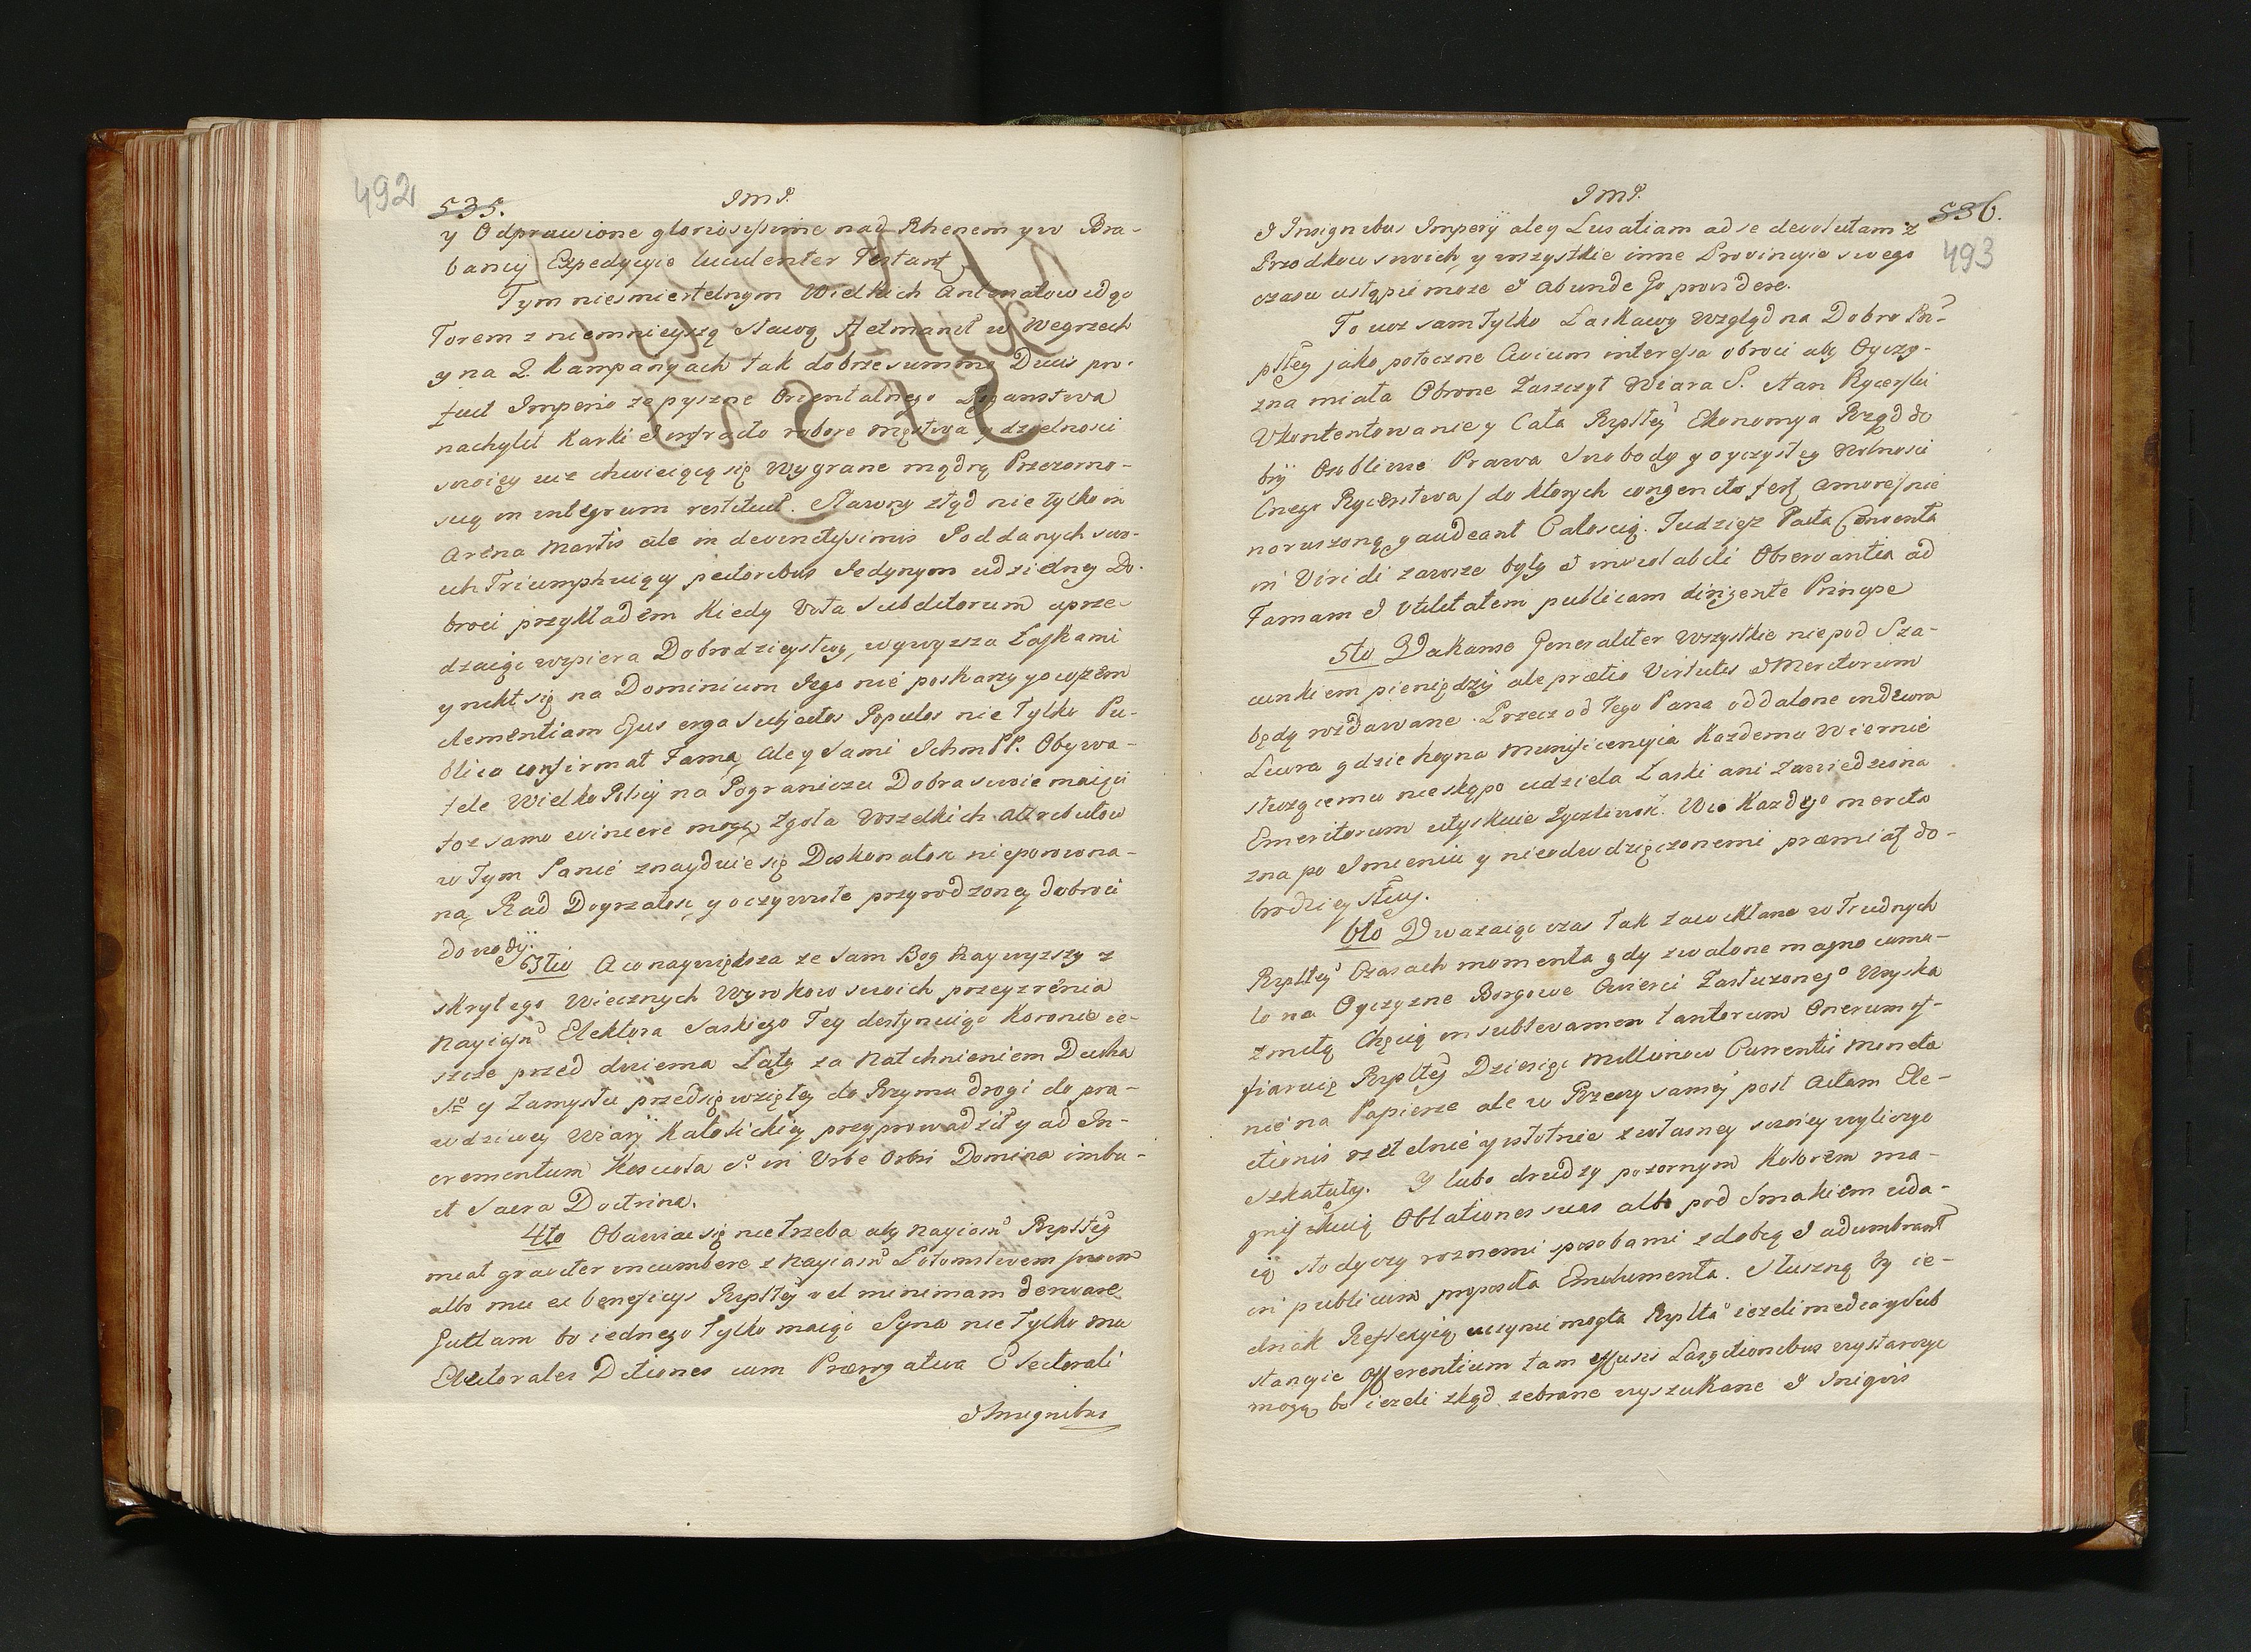 492
535.
JmP.
y Odprawione gloriosissime nad Rhenem y w Bra-
bancij Expedycyie luculenter Testant
Tym niesmiertelnym Wielkich Antenatow idąc
Torem z niemnieyszą sławą Hetmanił w Wegrzech
y na 2 Kampanyach tak dobrze summo Ducis pro-
fuit Imperio ze pyszne Orientalnego Poganstwa
nachylił Karki et infracto robore męstwa y dzielnosci
swoiey iuz chwieiącą się Wygrane mądrą Przezorno-
scią in integrum restituit. Sławny ztąd nie tylko in
Arena Martis ale in devinctissimis Poddanych swo-
ich Triumphuiący pectoribus Jedynym udzielney Do-
broci przykładem kiedy Vota subditorum uprze-
dzaiąc wspiera Dobrodzieystwy, wywyzsza Łaskami
y nikt się na Dominium Jego nie poskarzy y owszem
clementiam Ejus erga subjectos Populos nie tylko Pu-
blica confirmat Fama, ale y Sami IchmPP. Obywa-
tele WielkoPolscy na Pograniczu Dobra swoie maiący
toz samo evincere mogą, zgoła Wszelkich attributow
w Tym Panie znayduie się Doskonałosc nieporowna-
na, Rad Doyrzałosc, y oczywiste przyrodzoney dobroci
dowody.
3tio A co naywiększa ze sam Bog Naywyzszy z
skrytego Wiecznych Wyrokow swoich przeyzrenia
Nayiasn Elektora Saskiego Tey destynuiąc Koronie ie-
szcze przed dwiema Laty za Natchnieniem Ducha
So y Zamysłu przedsięwziętey do Rzymu drogi do pra-
wdziwey Wiary Katolickiey przyprowadził y ad In-
crementum Koscioła So in Urbe Orbis Domina imbu-
it Sacra Doctrina.
4to Obawiac się nie trzeba aby Nayiasn Rzpltey
miał graviter incumbere z Nayiasn Potomstwem swoim
albo mu ex beneficys Rzpltey vel minimam derivare
Guttam bo iednego tylko maiąc Syna nie tylko mu
Electorales Ditiones cum Prærogativa Electorali
et Insignibus
JmP.
536.
493
et Insignibus Imperij ale y Lusatiam ad se devolutam z
Przodkow swoich, y wszystkie inne Prowincyie swego
czasu ustąpic moze et abunde Jo providere.
To iuz sam tylko Łaskawy Wzgląd na Dobro Rz-
pltey jako potoczne Civium interessa obroci aby Oyczy-
zna miała Obrone Zaszczyt Wiara S. Stan Rycerski
Ukontentowanie y Cała Rzpltey Ekonomya Rząd do
bry Osobliwie Prawa Swobody y oyczystey Wolnosci
Cnego Rycerstwa / do ktorych congenito fert amore / nie
noruszoną gaudeant Całoscią. Tudziesz Pacta Conventa
in Viridi zawsze były et inviolabili Observantia ad
Famam et Utilitatem publicam dirigente Principe
5to Wakanse Generaliter wszystkie nie pod Sza-
cunkiem pieniędzy ale prætio Virtutis et Meritorum
będą rozdawane. Precz od Tego Pana oddalone indziora
Lucra gdzie hoyna Munificencyia Kazdemu Wiernie
słuzącemu nieskąpo udziela Łaski ani Zawiedziona
Emeritorum utyskuie Zyczliwosc. Wie Kazdego merita
zna po Imieniu y nieodwdzięczonemi præmiat do-
brodzieystwy.
6to Uwazaiąc czas tak zawikłane w Trudnych
Rzpltey Czasach momenta gdy zwalone magno cumu-
lo na Oyczyzne Borgowe Cwierci Zasłuzonego Woyska
z miłą Chęcią in sublevamen tantorum Onerum of-
fiaruie Rzpltey Dziesięc Millionow Currentis Moneta
nie na Papierze ale w Rzeczy samey post Actum Ele-
ctionis rzetelnie y istotnie z własney swoiey wyliczyc
Szkatuły. Y lubo drudzy pozornym Kolorem ma-
gnifikuią Oblationes suas albo pod Smakiem uda-
ią słodyczy roznemi sposobami zdobią et adumbrant
in publicum proposita Emolumenta. Słuszną by ie-
dnak Reflexyią uczynic mogła Rzplta iezeli media y Sub
stancyie offerentium tam effusis Largitionibus wystarczyc
mogą, bo iezeli zkąd zebrane wyszukane et Insignis